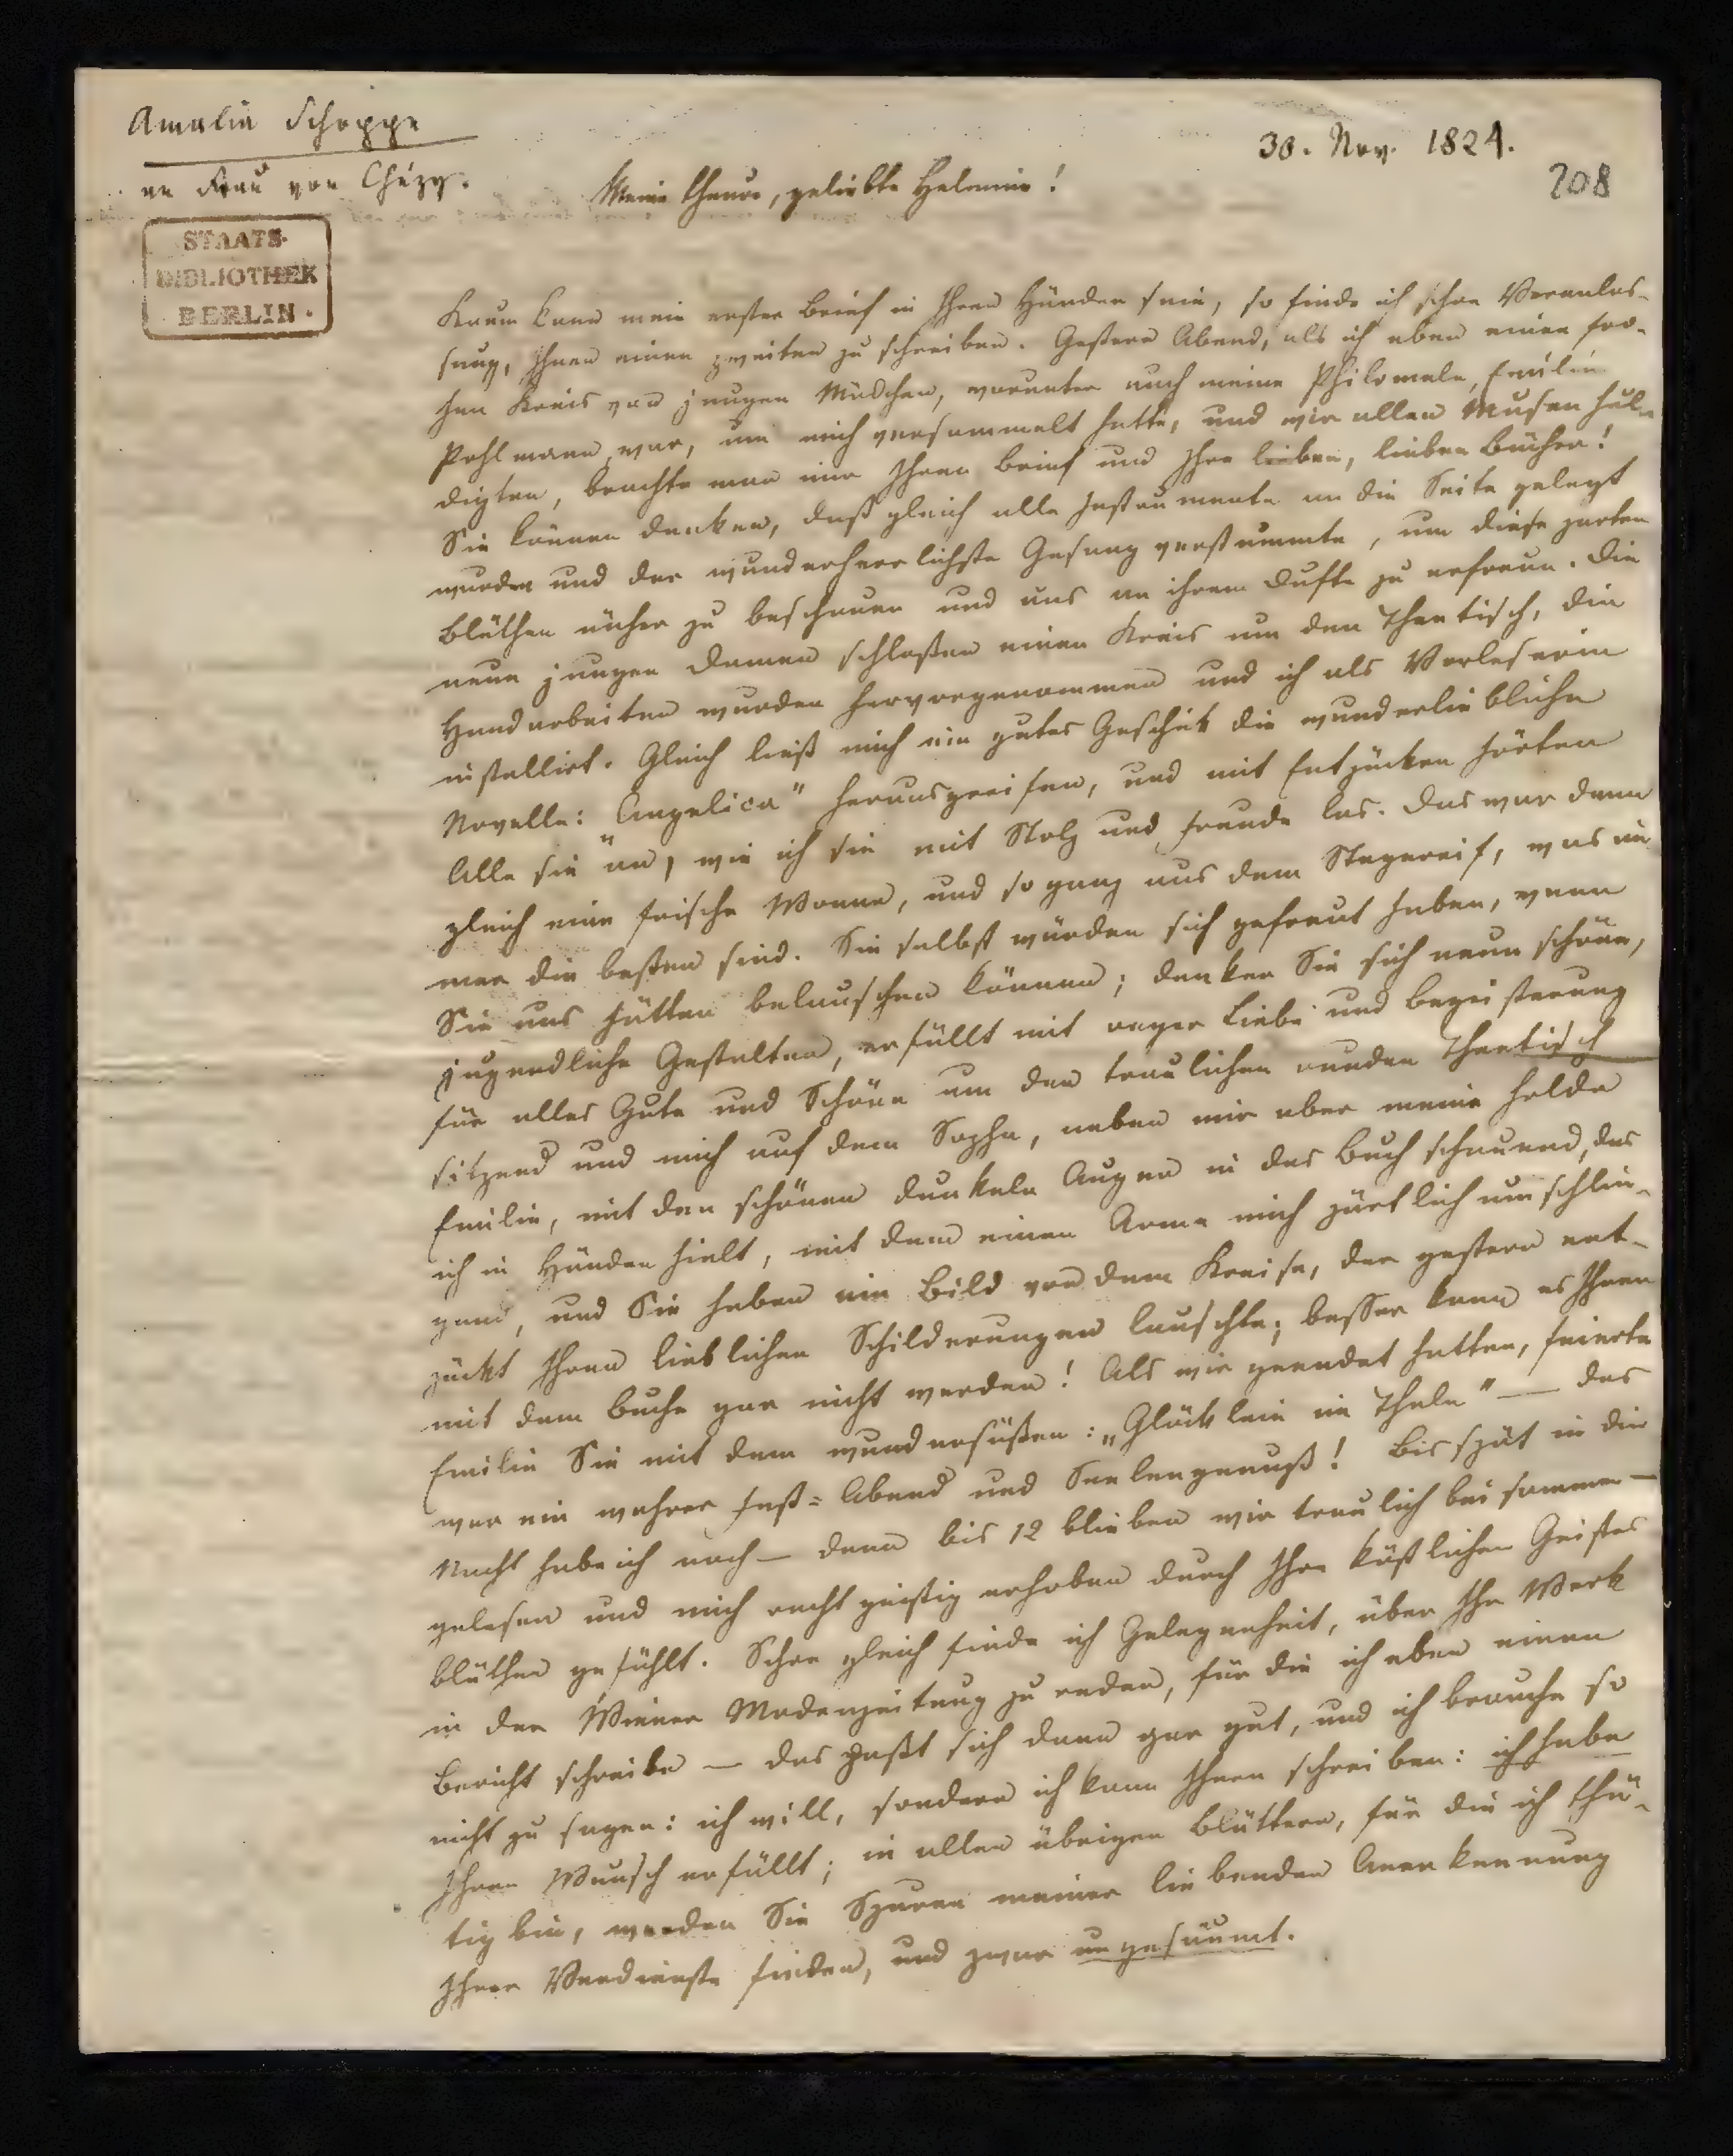 Amalia Schoppe
an Frau von Chézy.
30. Nov. 1824.
208
STAATS-
BIBLIOTHEK
BERLIN.
Meine theure, geliebte Helmine!
Kaum kann mein erster Brief in Ihren Händen sein, so finde ich schon Veranlas-
sung, Ihnen einen zweiten zu schreiben. Gestern Abend, als ich eben einen fro-
hen Kreis von jungen Mädchen, worunter auch meine Philomele, Emilie
Pohlmann, war, um mich versammelt hatte, und wir allen Musen hul-
digten, brachte man mir Ihren Brief und Ihre lieben, lieben Bücher!
Sie können denken, daß gleich alle Instrumente an die Seite gelegt
wurden und der wunderherrlichste Gesang verstummte, um diese zarten
Blüthen näher zu beschauen und uns an ihrem Dufte zu erfreun. Die
neun jungen Damen schloßen einen Kreis um den Theetisch, die
Handarbeiten wurden hervorgenommen und ich als Vorleserin
installirt. Gleich ließ mich ein gutes Geschick die wunderliebliche
Novelle: „Angelica" herausgreifen, und mit Entzücken hörten
Alle sie an, wie ich sie mit Stolz und Freude las. Das war dann
gleich eine frische Wonne, und so ganz aus dem Stegereif, was im-
mer die besten sind. Sie selbst würden sich gefreut haben, wenn
Sie uns hätten belauschen können; denken Sie sich neun schöne,
jugendliche Gestalten, erfüllt mit reger Liebe und Begeisterung
für alles Gute und Schöne um den traulichen runden Theetisch
sitzend und mich auf dem Sopha, neben mir aber meine holde
Emilie, mit den schönen dunkeln Augen in das Buch schauend, das
ich in Händen hielt, mit dem einen Arme mich zärtlich umschlin-
gend, und Sie haben ein Bild von dem Kreise, der gestern ent-
zückt Ihren lieblichen Schilderungen lauschte; besser kann es Ihnen
mit dem Buche gar nicht werden! Als wir geendet hatten, feierte
Emilie Sie mit dem wundersüßen: „Glöcklein im Thale" — das
war ein wahrer Fest-Abend und Seelengenuß! Bis spät in die
Nacht habe ich noch — denn bis 12 blieben wir traulich beisammen —
gelesen und mich recht geistig erhoben durch Ihre köstlichen Geistes
blüthen gefühlt. Schon gleich finde ich Gelegenheit, über Ihr Werk
in der Wiener Modenzeitung zu reden, für die ich eben einen
Bericht schreibe — das paßt sich denn gar gut, und ich brauche so
nicht zu sagen: ich will, sondern ich kann Ihnen schreiben: ich habe
Ihren Wunsch erfüllt; in allen übrigen Blättern, für die ich thä-
tig bin, werden Sie Spuren meiner liebenden Anerkennung
Ihrer Verdienste finden, und zwar ungesäumt.